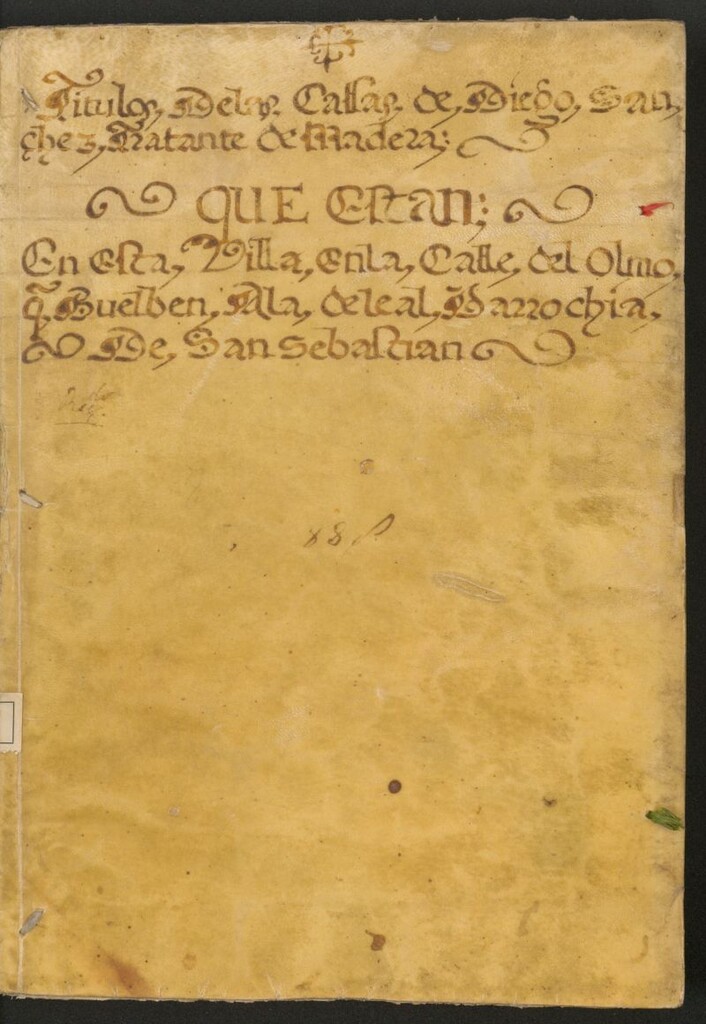 Titulos, Delas Cassas de, Diego, San,
chez, Tratante de Madera;
QUE ESTAN;
En esta, Villa, enla, Calle, del Olmo,
q̃ Buelben, Ala, deleal, Parrochia,
De, San sebastian